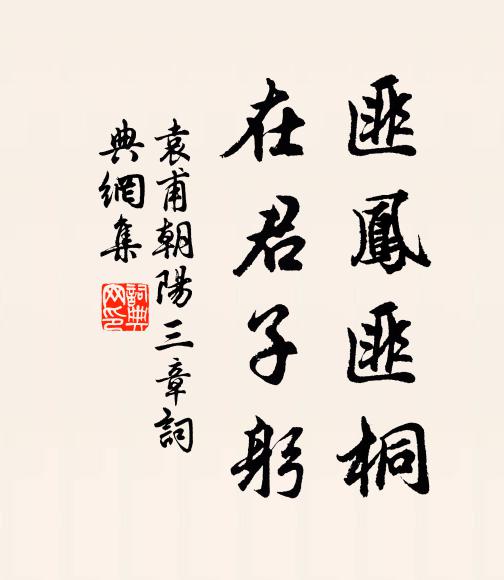 匪鳳匪桐
在君子躬
袁甫朝陽三章詞
典網集
詞典
网印